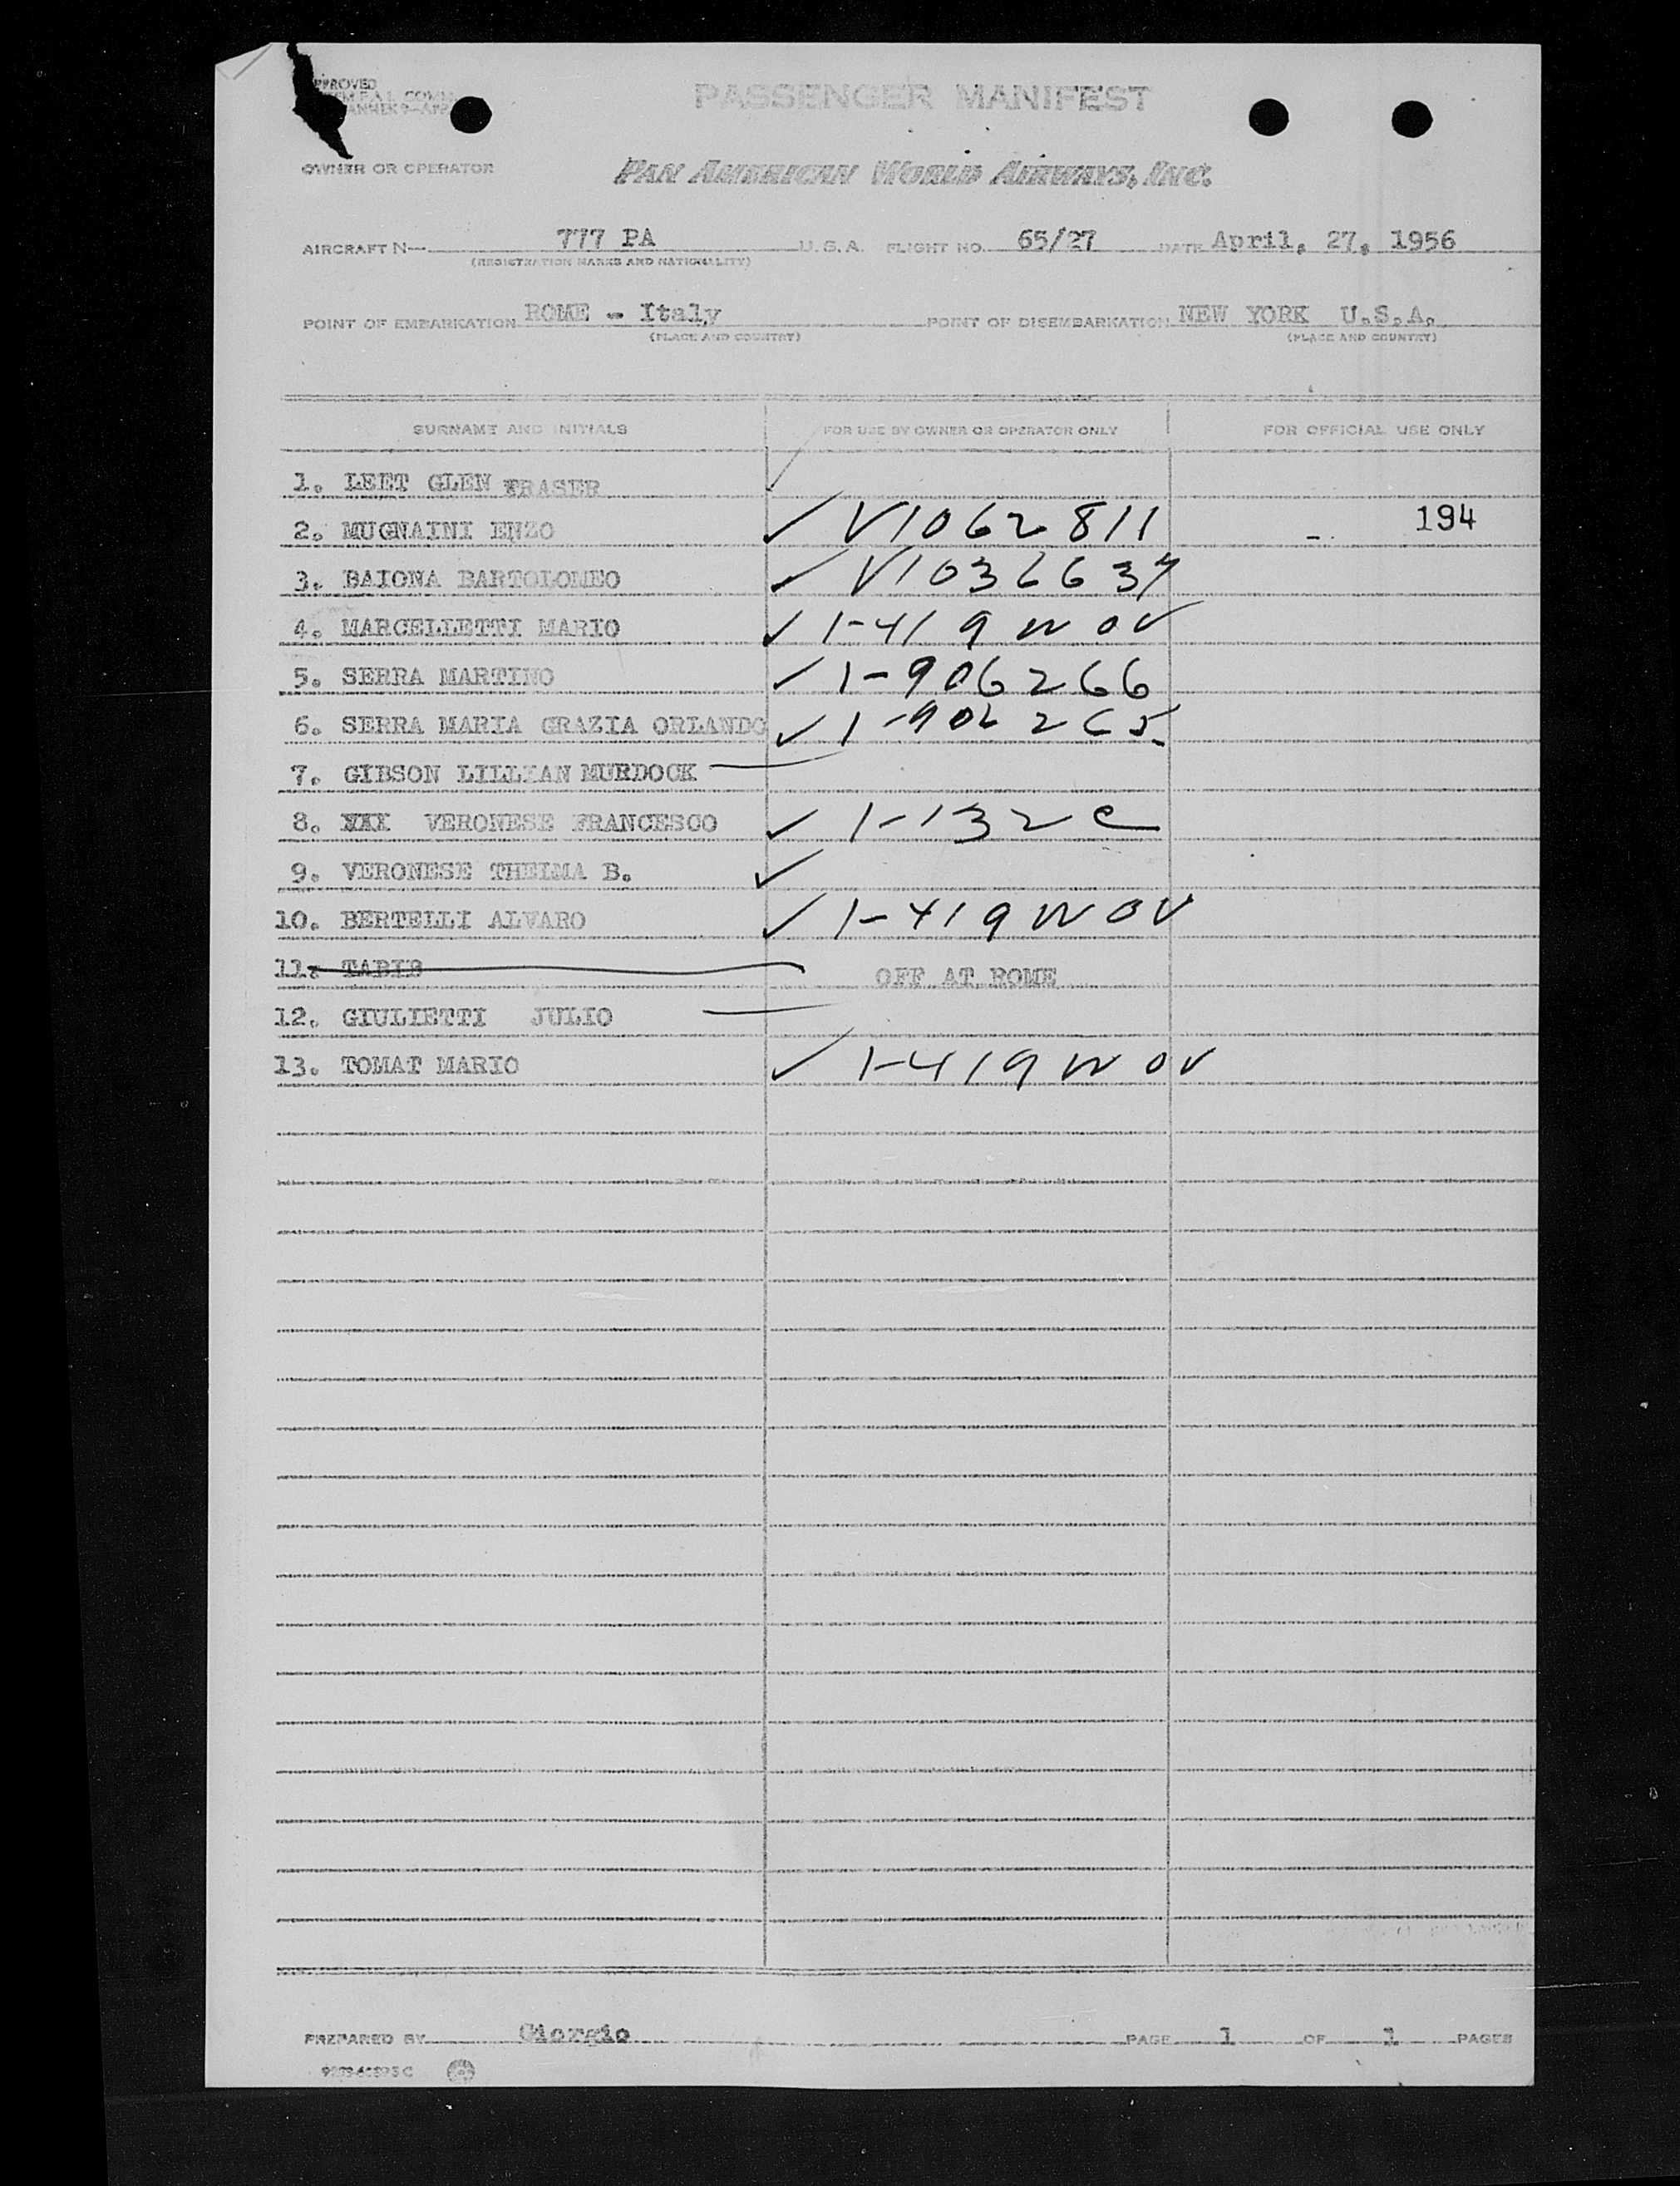 PASSENGER MANIFEST
OWNER OR OPERATOR PAN AMERICAN WORLD AIRWAYS, INC.
AIRCRAFT N— 777 PA U.S.A. FLIGHT NO. 65/27 DATE April, 27, 1956
(REGISTRATION MARKS AND NATIONALITY)
POINT OF EMBARKATION ROME - Italy POINT OF DISEMBARKATION NEW YORK U.S.A.
(PLACE AND COUNTRY) (PLACE AND COUNTRY)
SURNAME AND INITIALS FOR USE BY OWNER OR OPERATOR ONLY FOR OFFICIAL USE ONLY
1. LEET GLEN FRASER
2. MUGNAINI ENZO ✓ V1062811 194
3. BAIONA BARTOLOMEO ✓ V1036637
4. MARCELLETTI MARIO ✓ 1-419 NOV
5. SERRA MARTINO ✓ 1-906266
6. SERRA MARIA GRAZIA ORLANDO ✓ 1-906265
7. GIBSON LILLIAN MURDOCK
8. XXX VERONESE FRANCESCO ✓ 1-132 C
9. VERONESE THELMA B. ✓
10. BERTELLI ALVARO ✓ 1-419 NOV
11. OFF AT ROME
12. GIULIETTI JULIO
13. TOMAT MARIO ✓ 1-419 NOV
PREPARED BY Giorgio PAGE 1 OF 1 PAGES